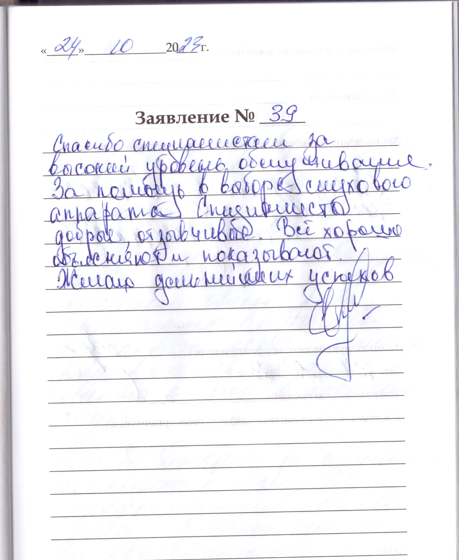 « 24 » 10 2023г.
Заявление № 39
Спасибо специалистам за
высокий уровень обслуживание.
За помощь в выборе слухового
аппарата. Специалисты
добрые отзывчивые. Всё хорошо
объясняют и показывают.
Желаю дальнейших успехов